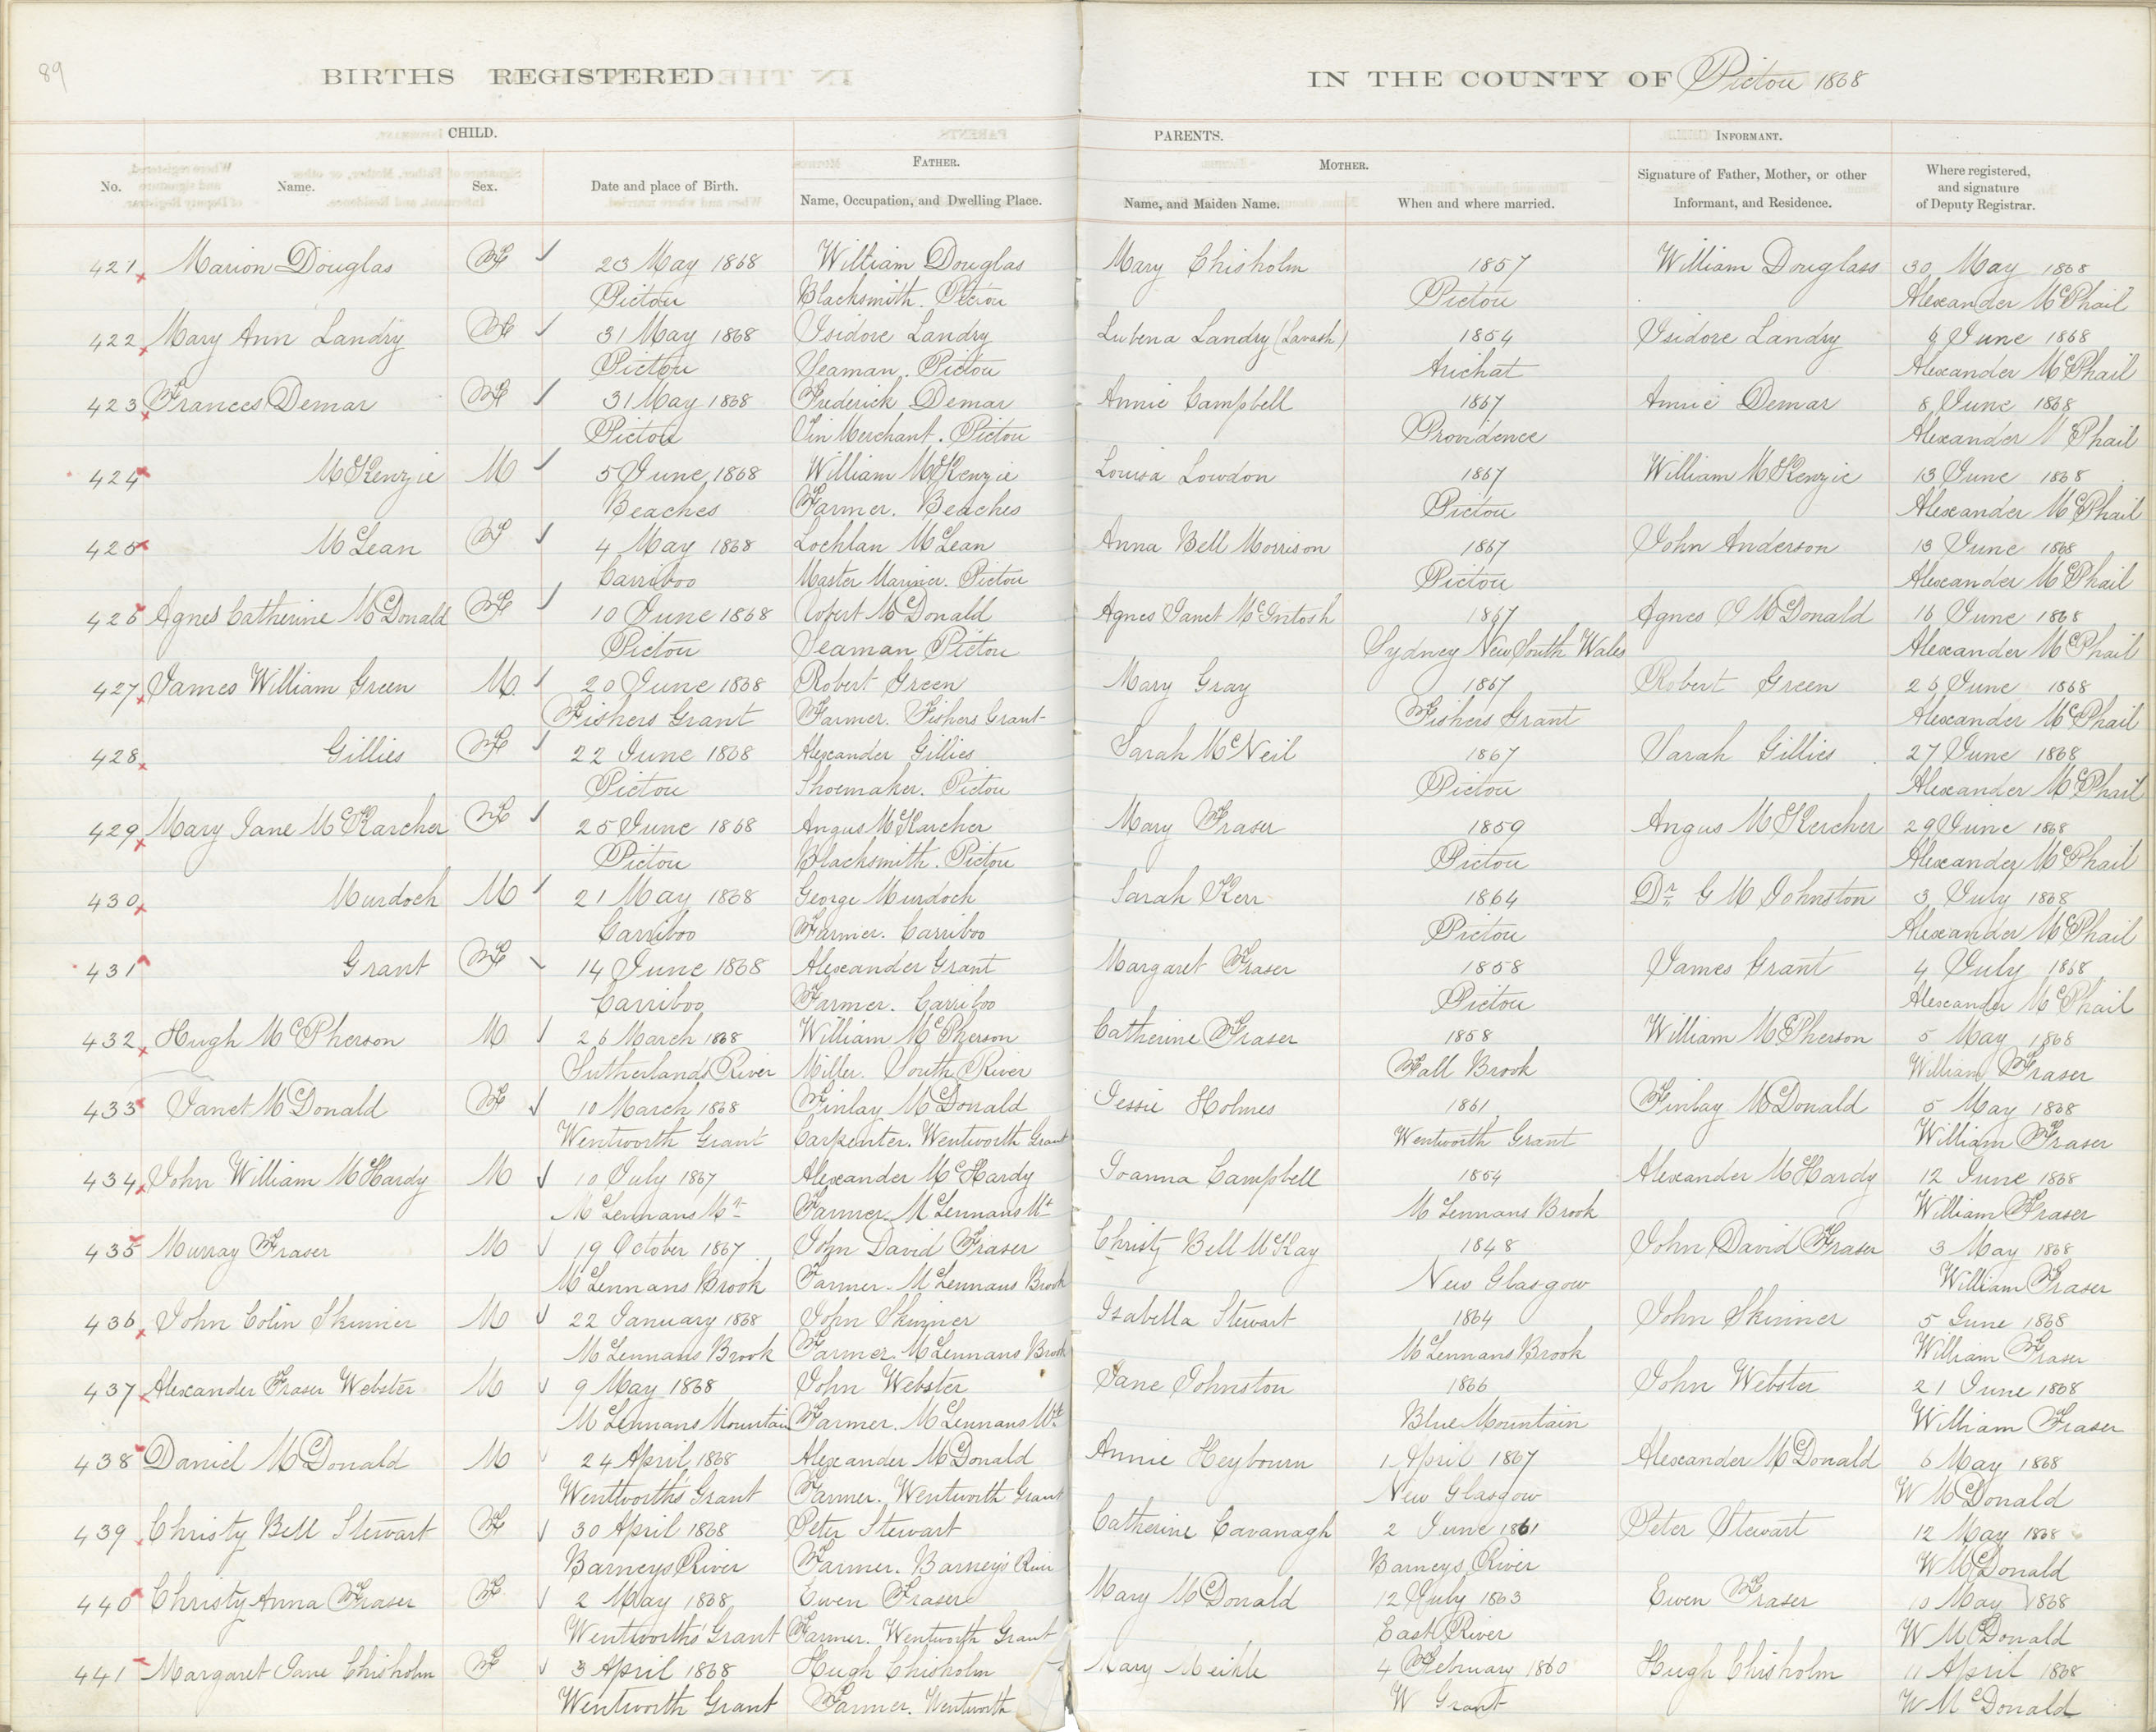 89
BIRTHS REGISTERED IN THE COUNTY OF Pictou 1868
CHILD. PARENTS. INFORMANT.
FATHER. MOTHER.
No. Name. Sex. Date and place of Birth. Name, Occupation, and Dwelling Place. Name, and Maiden Name. When and where married. Signature of Father, Mother, or other Informant, and Residence. Where registered, and signature of Deputy Registrar.
421 Marion Douglas F 23 May 1868 William Douglas Mary Chisholm 1857 William Douglass 30 May 1868
Pictou Blacksmith. Pictou Pictou Alexander McPhail
422 Mary Ann Landry F 31 May 1868 Isidore Landry Lubena Landry (Lavash) 1854 Isidore Landry 6 June 1868
Pictou Seaman. Pictou Arichat Alexander McPhail
423 Frances Demar F 31 May 1868 Frederick Demar Annie Campbell 1867 Annie Demar 8 June 1868
Pictou Tin Merchant. Pictou Providence Alexander McPhail
424 McKenzie M 5 June 1868 William McKenzie Louisa Lowdon 1867 William McKenzie 13 June 1868
Beaches Farmer. Beaches Pictou Alexander McPhail
425 McLean F 4 May 1868 Lochlan McLean Anna Bell Morrison 1867 John Anderson 13 June 1868
Carriboo Master Mariner. Pictou Pictou Alexander McPhail
426 Agnes Catherine McDonald F 10 June 1868 Robert McDonald Agnes Janet McIntosh 1867 Agnes J McDonald 16 June 1868
Pictou Seaman Pictou Sydney New South Wales Alexander McPhail
427 James William Green M 20 June 1868 Robert Green Mary Gray 1867 Robert Green 26 June 1868
Fishers Grant Farmer. Fishers Grant Fishers Grant Alexander McPhail
428 Gillies F 22 June 1868 Alexander Gillies Sarah McNeil 1867 Sarah Gillies 27 June 1868
Pictou Shoemaker. Pictou Pictou Alexander McPhail
429 Mary Jane McKarcher F 25 June 1868 Angus McKarcher Mary Fraser 1859 Angus McKercher 29 June 1868
Pictou Blacksmith. Pictou Pictou Alexander McPhail
430 Murdoch M 21 May 1868 George Murdoch Sarah Kerr 1864 Dr G M Johnston 3 July 1868
Carriboo Farmer. Carriboo Pictou Alexander McPhail
431 Grant F 14 June 1868 Alexander Grant Margaret Fraser 1858 James Grant 4 July 1868
Carriboo Farmer. Carriboo Pictou Alexander McPhail
432 Hugh McPherson M 26 March 1868 William McPherson Catherine Fraser 1858 William McPherson 5 May 1868
Sutherlands River Miller. South River Fall Brook William Fraser
433 Janet McDonald F 10 March 1868 Finlay McDonald Jessie Holmes 1861 Finlay McDonald 5 May 1868
Wentworth Grant Carpenter. Wentworth Grant Wentworth Grant William Fraser
434 John William McHardy M 10 July 1867 Alexander McHardy Joanna Campbell 1854 Alexander McHardy 12 June 1868
McLennans Mt Farmer. McLennans Mt McLennans Brook William Fraser
435 Murray Fraser M 19 October 1867 John David Fraser Christy Bell McKay 1848 John David Fraser 3 May 1868
McLennans Brook Farmer. McLennans Brook New Glasgow William Fraser
436 John Colin Skinner M 22 January 1868 John Skinner Isabella Stewart 1864 John Skinner 5 June 1868
McLennans Brook Farmer McLennans Brook McLennans Brook William Fraser
437 Alexander Fraser Webster M 9 May 1868 John Webster Jane Johnston 1866 John Webster 21 June 1868
McLennans Mountain Farmer. McLennans Mt Blue Mountain William Fraser
438 Daniel McDonald M 24 April 1868 Alexander McDonald Annie Heybourn 1 April 1867 Alexander McDonald 6 May 1868
Wentworth's Grant Farmer. Wentworth Grant New Glasgow W McDonald
439 Christy Bell Stewart F 30 April 1868 Peter Stewart Catherine Cavanagh 2 June 1861 Peter Stewart 12 May 1868
Barneys River Farmer. Barney's River Barneys River W McDonald
440 Christy Anna Fraser F 2 May 1868 Ewen Fraser Mary McDonald 12 July 1863 Ewen Fraser 10 May 1868
Wentworth's Grant Farmer. Wentworth Grant East River W McDonald
441 Margaret Jane Chisholm F 3 April 1868 Hugh Chisholm Mary Meikle 4 February 1860 Hugh Chisholm 11 April 1868
Wentworth Grant Farmer. Wentworth W Grant W McDonald